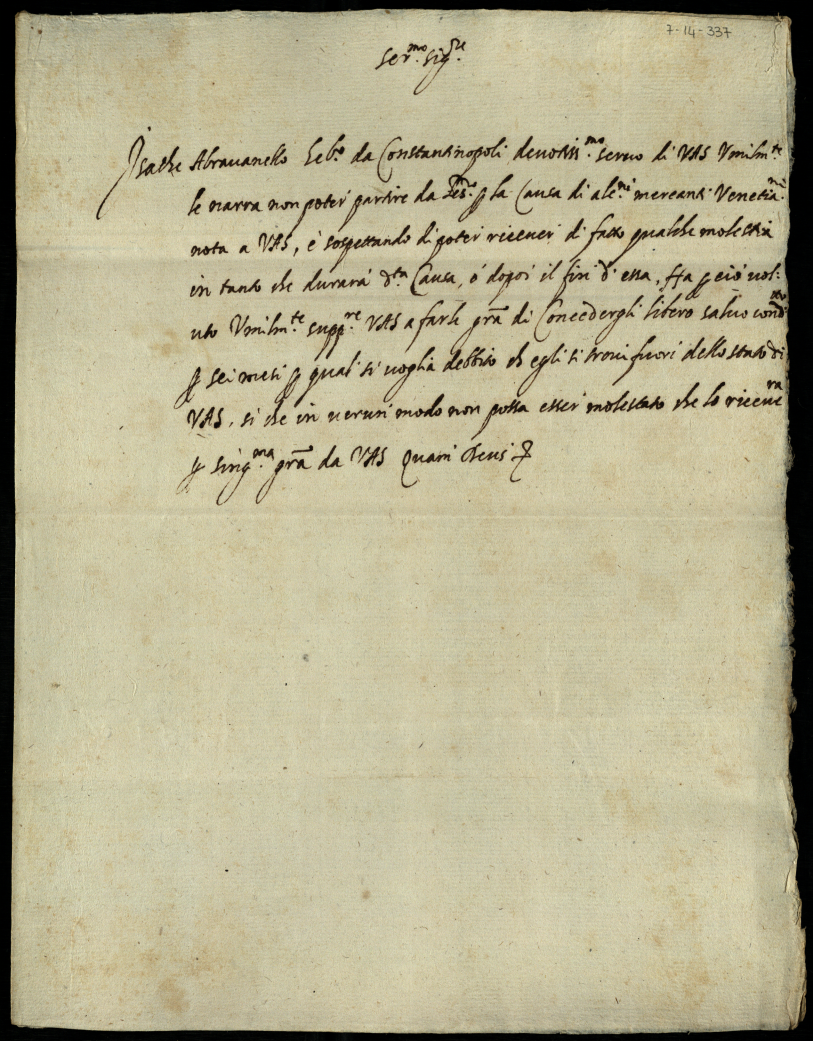 7-14-337
Ser.mo Sig.re
Isache Abrauanello Heb.o da Constantinopoli deuotiss.mo seruo di VAS Vmilm.te
le narra non poter partire da p la Causa di alc.ni mercanti Venetia.ni
nota a VAS, é sospettando di poter riceuer di fatto qualche molestia
in tanto che durará d.ta Causa, ó dopoi il fin d'essa, p ció uol:
uto Vmilm.te supp.re VAS a farli gr̃a di Concedergli libero saluo cond.tto
p sei mesi p qual si uoglia debbito ch egli si troui fuori dello stato di
VAS, si che in uerun modo non possa esser molestato che lo riceue.rà
p sing.ma gr̃a da VAS Quam Deus